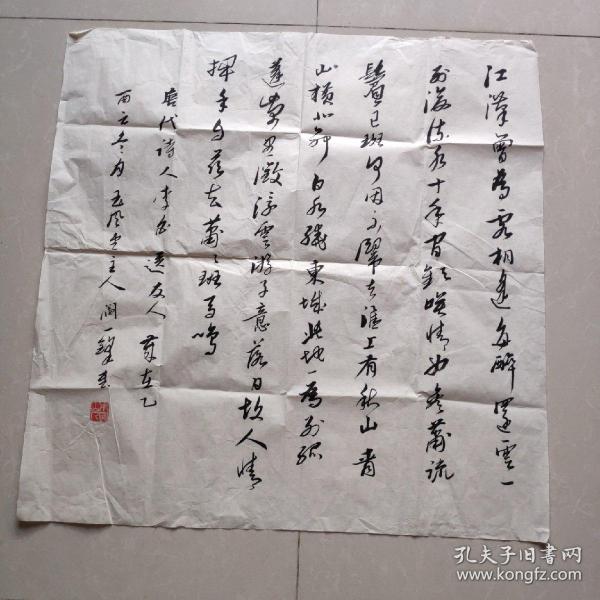 江漢曾為客相逢每醉還雲一
别後流水十年间歡笑情如舊蕭疏
鬓已斑何因不歸去淮上有秋山青
山横北郭白水繞東城此地一為别孤
蓬萬里征浮雲游子意落日故人情
揮手自兹去蕭々班馬鳴
唐代诗人李白送友人
冬月玉风堂主人
孔夫子旧书网
www.kongfz.com